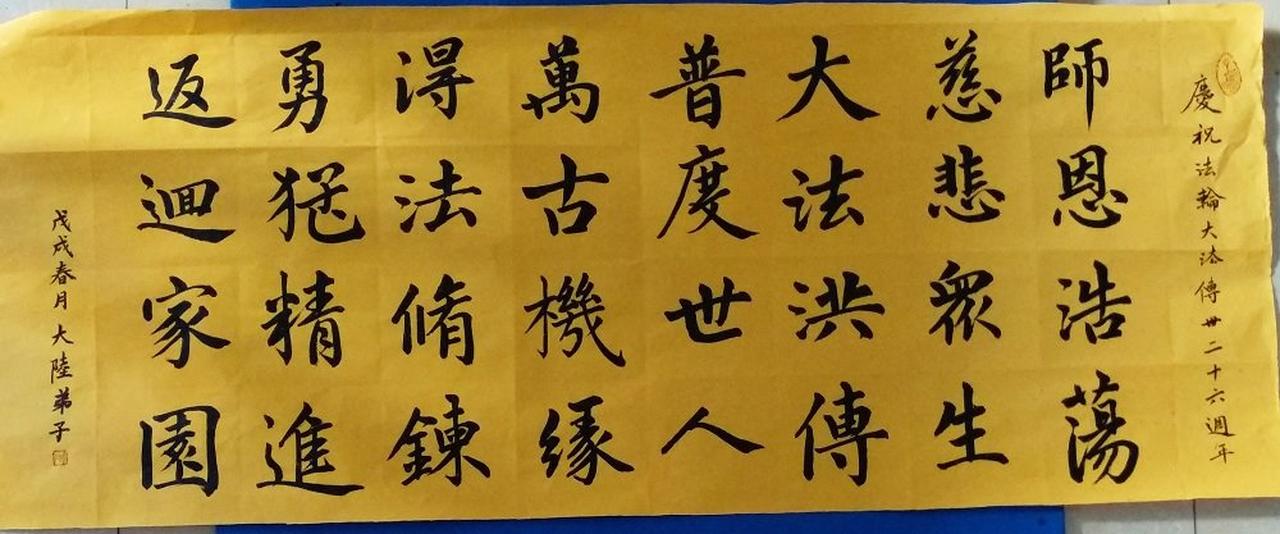 慶祝法輪大法傳世二十六週年
師恩浩蕩
慈悲眾生
大法洪傳
普度世人
萬古機緣
得法脩鍊
勇猛精進
返迴家園
戊戌春月大陸弟子